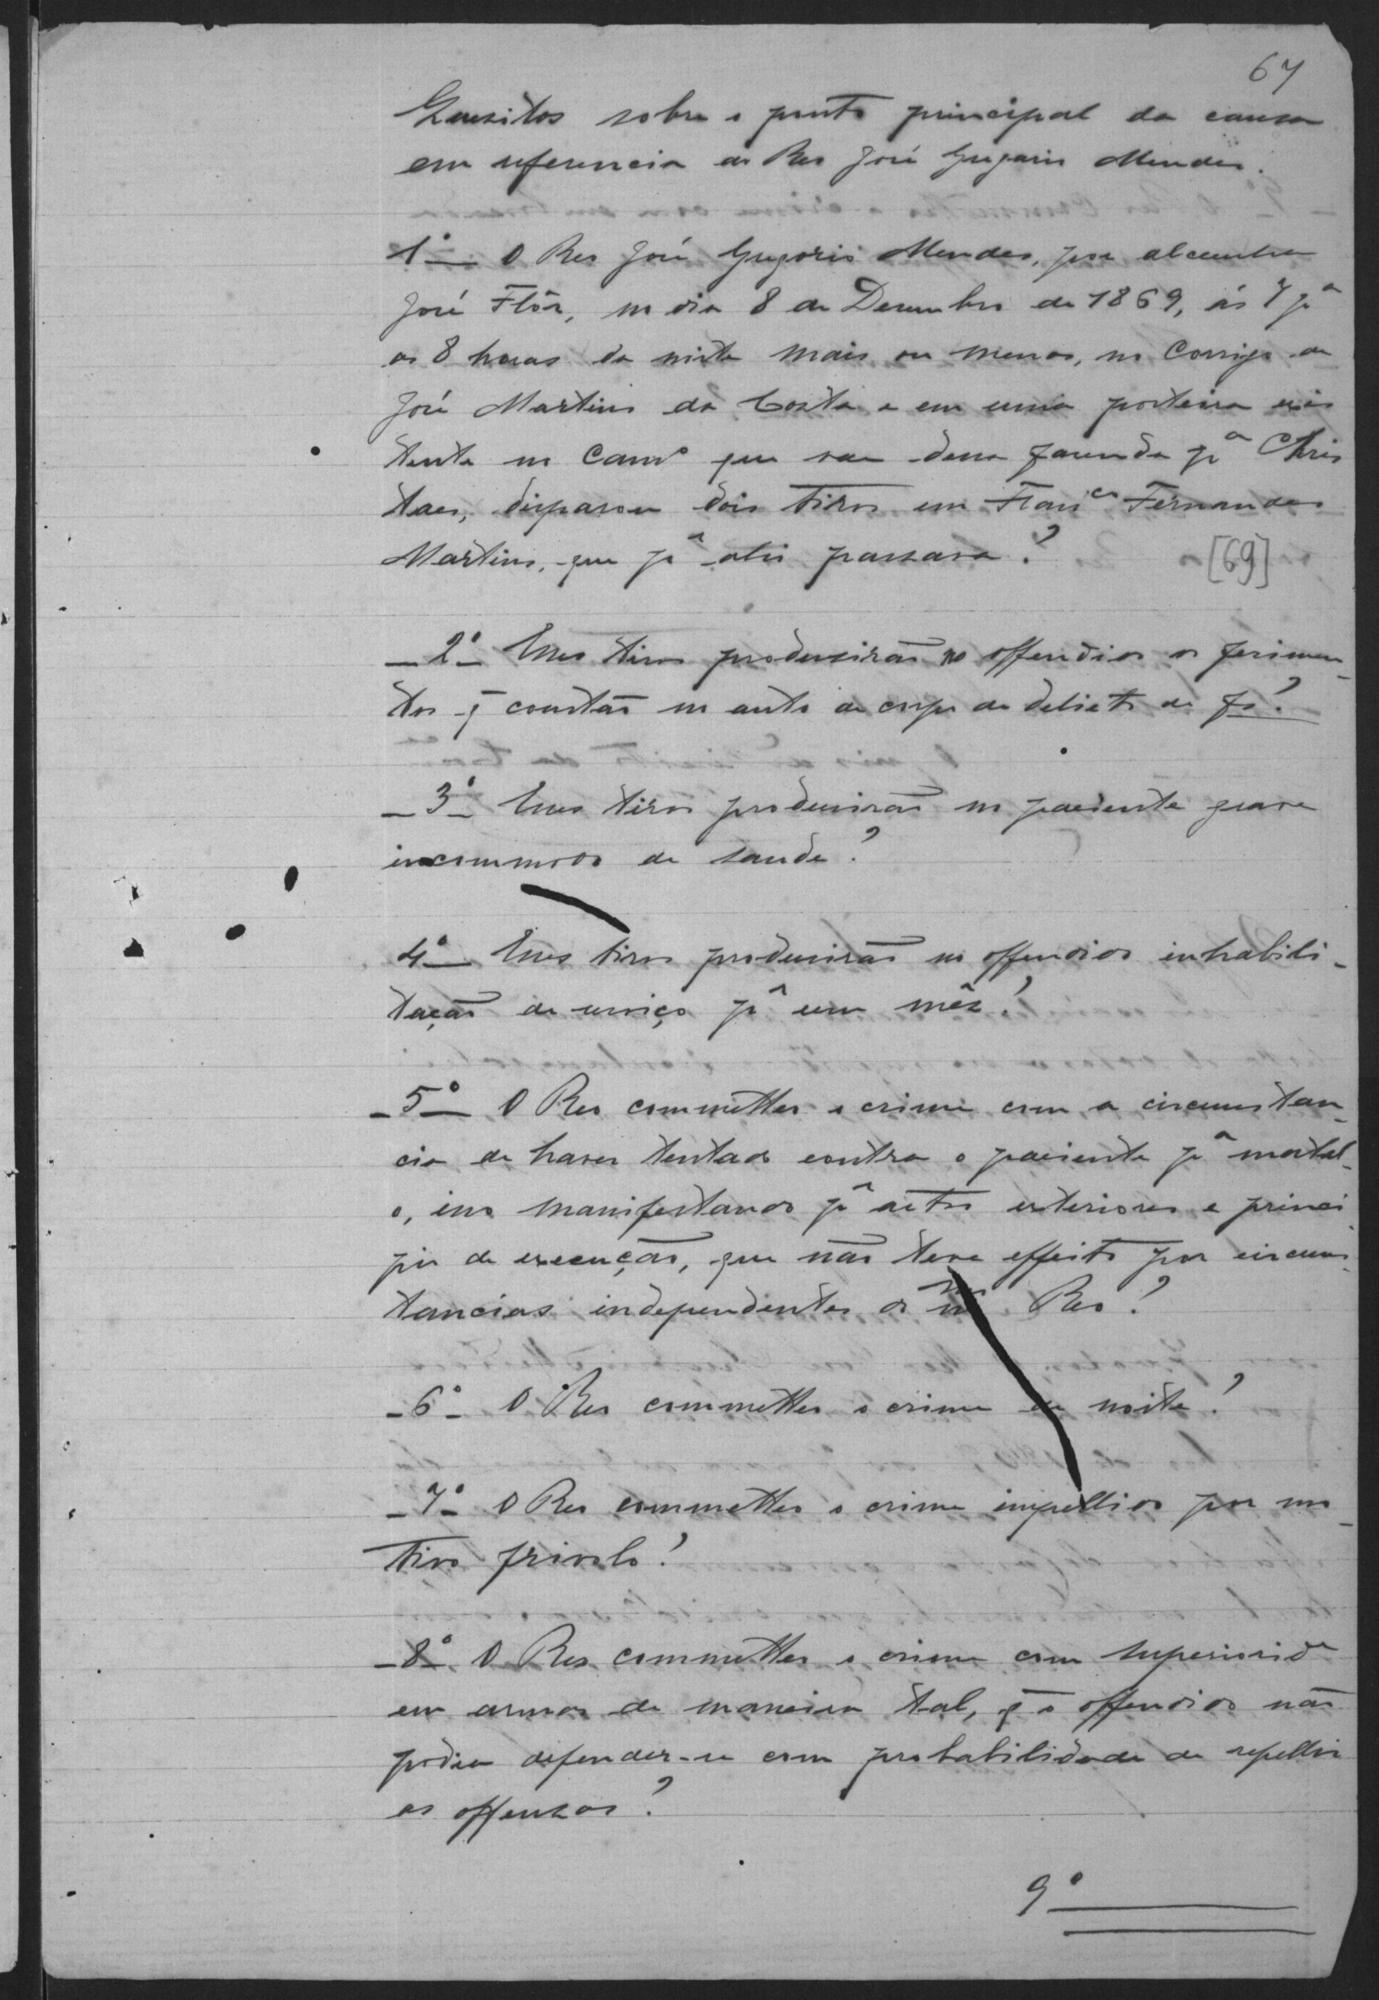 67
Quesitos sobre o ponto principal da causa
em referencia ao Reo José Gregorio Mendes.
1º O Reo José Gregorio Mendes, por alcunha
José Flôr, no dia 8 de Dezembro de 1869, ás 7 pª
as 8 horas da noite mais ou menos, no Corrego de
José Martins da Costa e em uma porteira exis
tente no camº que vae dessa fazenda pª Chris
taes, disparou dois tiros em Franco Fernandes
Martins, que pr alli passava?
[69]
2º Esses tiros produzirão no offendido os ferimen-
tos q̃ constão no auto de corpo de delicto de fs?
3º Esses tiros produzirão no paciente grave
incommodo de saude?
4º Esses tiros produzirão no offendido inhabili-
tação de serviço pr um mês?
5º O Reo commetteo o crime com a circumstan-
cia de haver tentado contra o paciente pª matal-
o, isso manifestando pr actos exteriores e princi-
pio de execução, que não teve effeito por circums-
tancias independentes do mmo Reo?
6º O Reo commetteo o crime de noite?
7º O Reo commetteo o crime impellido por mo-
tivo frivolo?
8º O Reo commetteo o crime com superioride
em armas de maneira tal, q̃ o offendido não
podia defender-se com probabilidade de repellir
as offensas?
9º